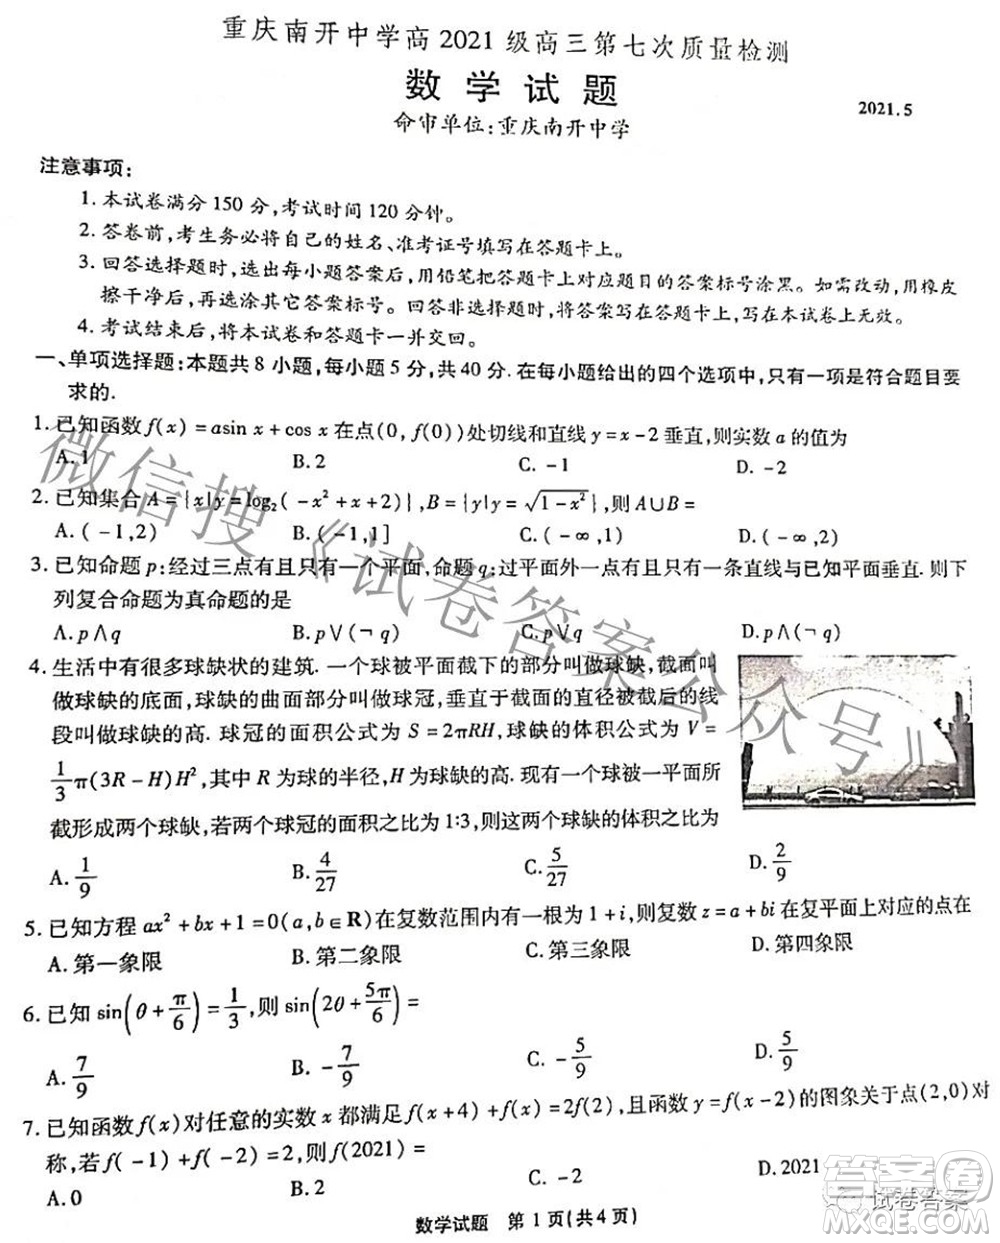 重庆南开中学高 2021 级高三第七次质量检测
数学试题
2021.5
命审单位:重庆南开中学
注意事项:
1. 本试卷满分 150 分,考试时间 120 分钟。
2. 答卷前,考生务必将自己的姓名、准考证号填写在答题卡上。
3. 回答选择题时,选出每小题答案后,用铅笔把答题卡上对应题目的答案标号涂黑。如需改动,用橡皮
擦干净后,再选涂其它答案标号。回答非选择题时,将答案写在答题卡上,写在本试卷上无效。
4. 考试结束后,将本试卷和答题卡一并交回。
一、单项选择题:本题共 8 小题,每小题 5 分,共 40 分. 在每小题给出的四个选项中,只有一项是符合题目要
求的.
1. 已知函数 f(x) = asin x + cos x 在点(0, f(0))处切线和直线 y = x - 2 垂直,则实数 a 的值为
A. 1 B. 2 C. -1 D. -2
2. 已知集合 A = {x|y = log₂( -x² + x + 2)}, B = {y|y = √(1 - x²)},则 A∪B =
A. ( -1,2) B. ( -1,1] C. ( -∞,1) D. ( -∞,2)
3. 已知命题 p:经过三点有且只有一个平面,命题 q:过平面外一点有且只有一条直线与已知平面垂直. 则下
列复合命题为真命题的是
A. p∧q B. p∨(¬ q) C. p∨q D. p∧(¬ q)
4. 生活中有很多球缺状的建筑. 一个球被平面截下的部分叫做球缺,截面叫
做球缺的底面,球缺的曲面部分叫做球冠,垂直于截面的直径被截后的线
段叫做球缺的高. 球冠的面积公式为 S = 2πRH,球缺的体积公式为 V =
1/3 π(3R - H)H²,其中 R 为球的半径,H 为球缺的高. 现有一个球被一平面所
截形成两个球缺,若两个球冠的面积之比为 1:3,则这两个球缺的体积之比为
A. 1/9 B. 4/27 C. 5/27 D. 2/9
5. 已知方程 ax² + bx + 1 = 0(a, b∈R)在复数范围内有一根为 1 + i,则复数 z = a + bi 在复平面上对应的点在
A. 第一象限 B. 第二象限 C. 第三象限 D. 第四象限
6. 已知 sin(θ + π/6) = 1/3,则 sin(2θ + 5π/6) =
A. 7/9 B. -7/9 C. -5/9 D. 5/9
7. 已知函数 f(x)对任意的实数 x 都满足 f(x + 4) + f(x) = 2f(2),且函数 y = f(x - 2)的图象关于点(2,0)对
称,若 f( -1) + f( -2) = 2,则 f(2021) =
A. 0 B. 2 C. -2 D. 2021
数学试题 第 1 页(共 4 页)
微信搜《试卷答案公众号》
答案圈
试卷答案
MXQE.COM